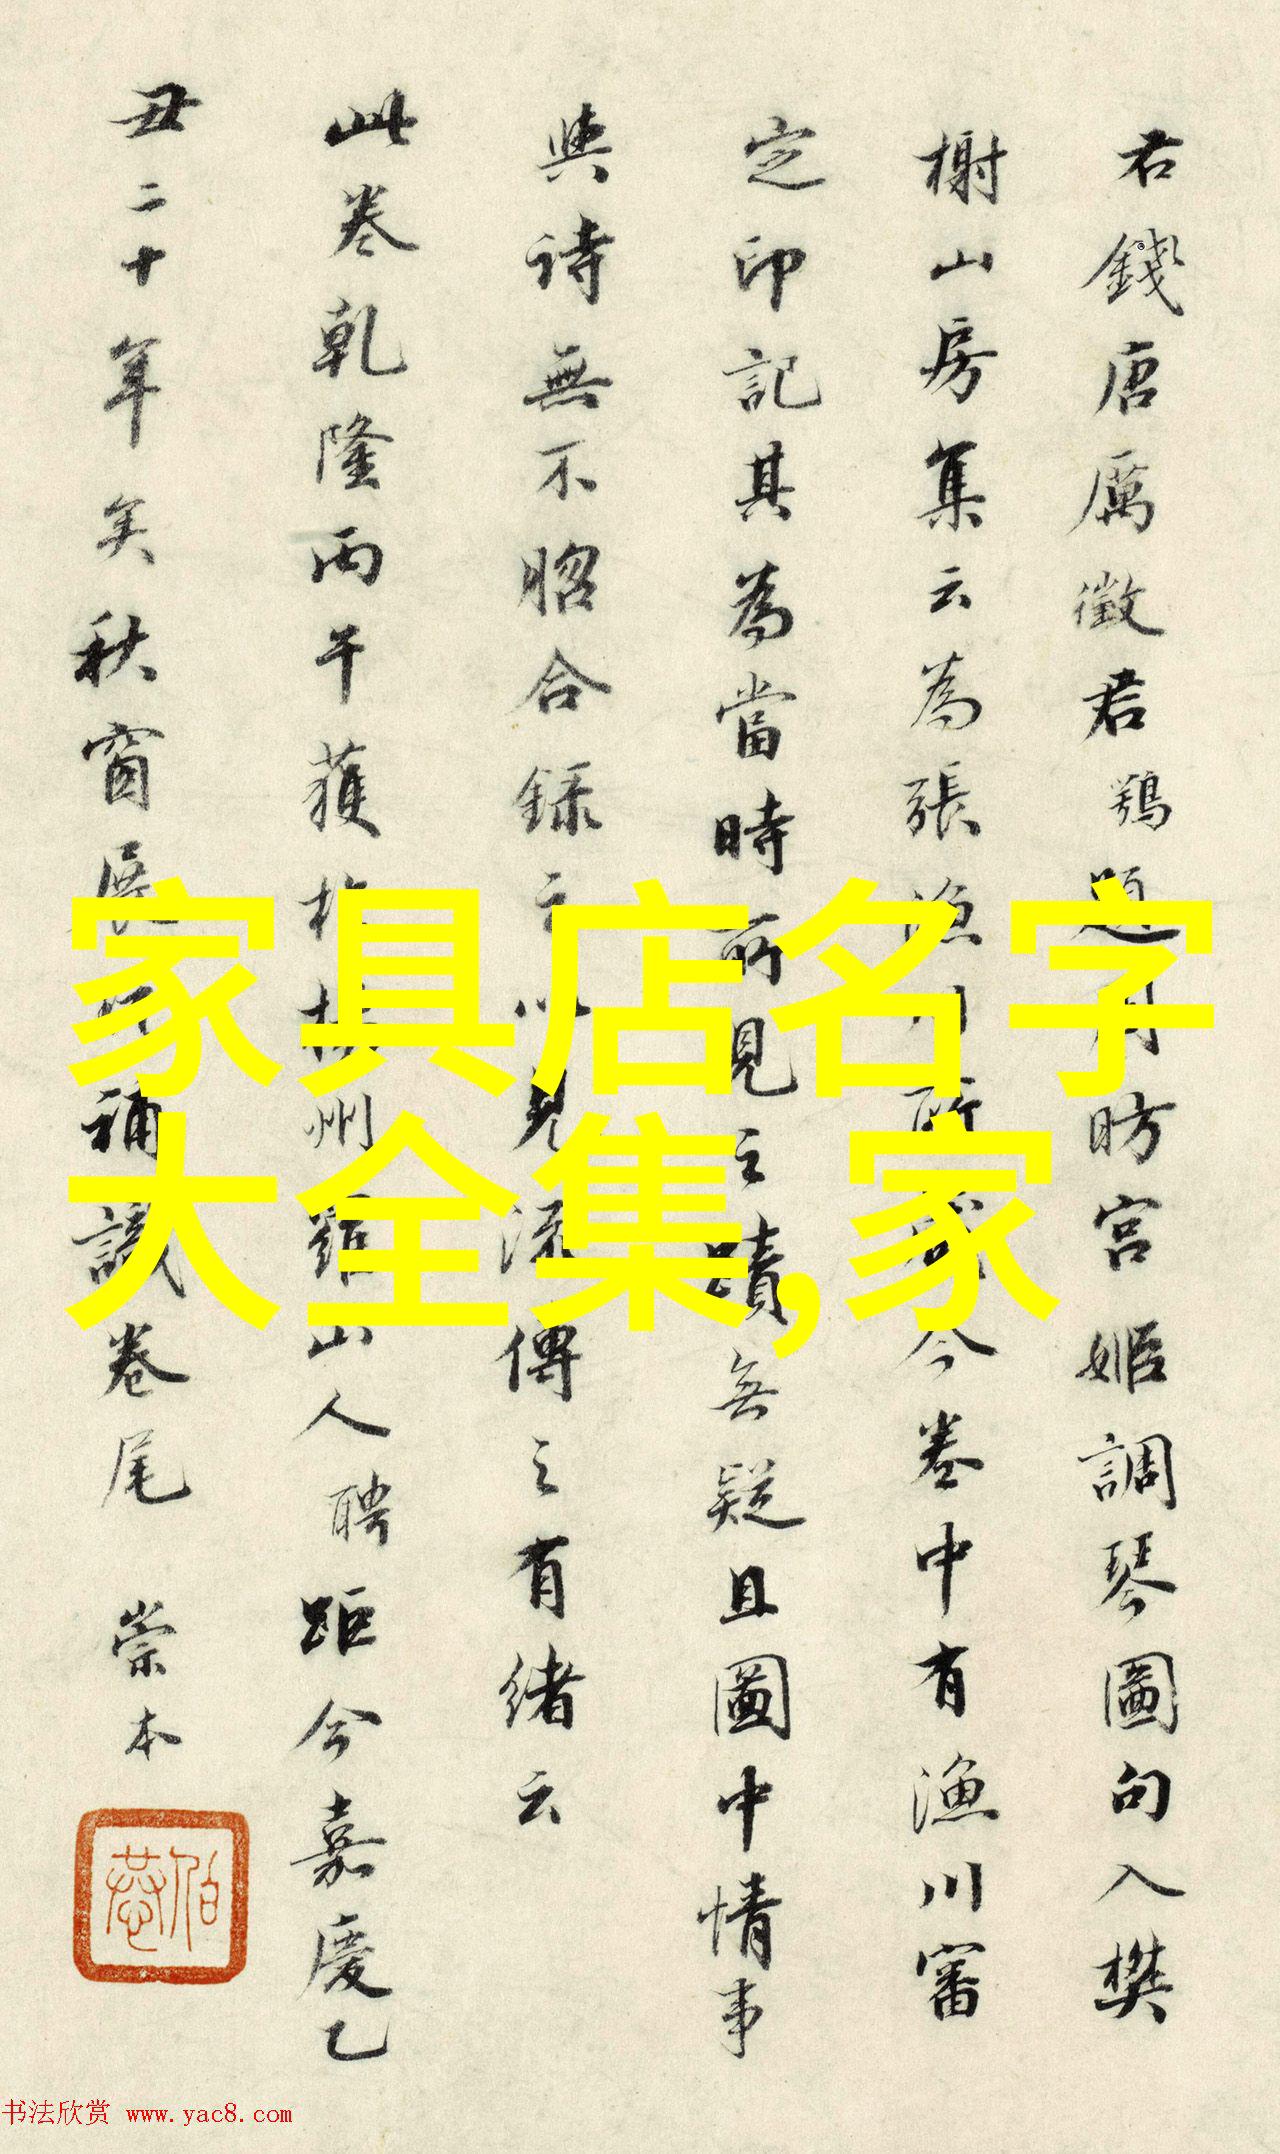 君錢唐厲徵君鶚題月昉宮姬調琴圖句入樊
榭山房集云為張漁川所今卷中有漁川審
定印記其為當時所見之蹟無疑且圖中情事
與詩無不昭合錄之以見流傳之有緒云
此卷乾隆丙午獲於杭州羅山人聘距今嘉慶乙
丑二十年矣秋窗展補識卷尾 崇本
家具店名字
大全集,家
书法欣赏 www.yac8.com